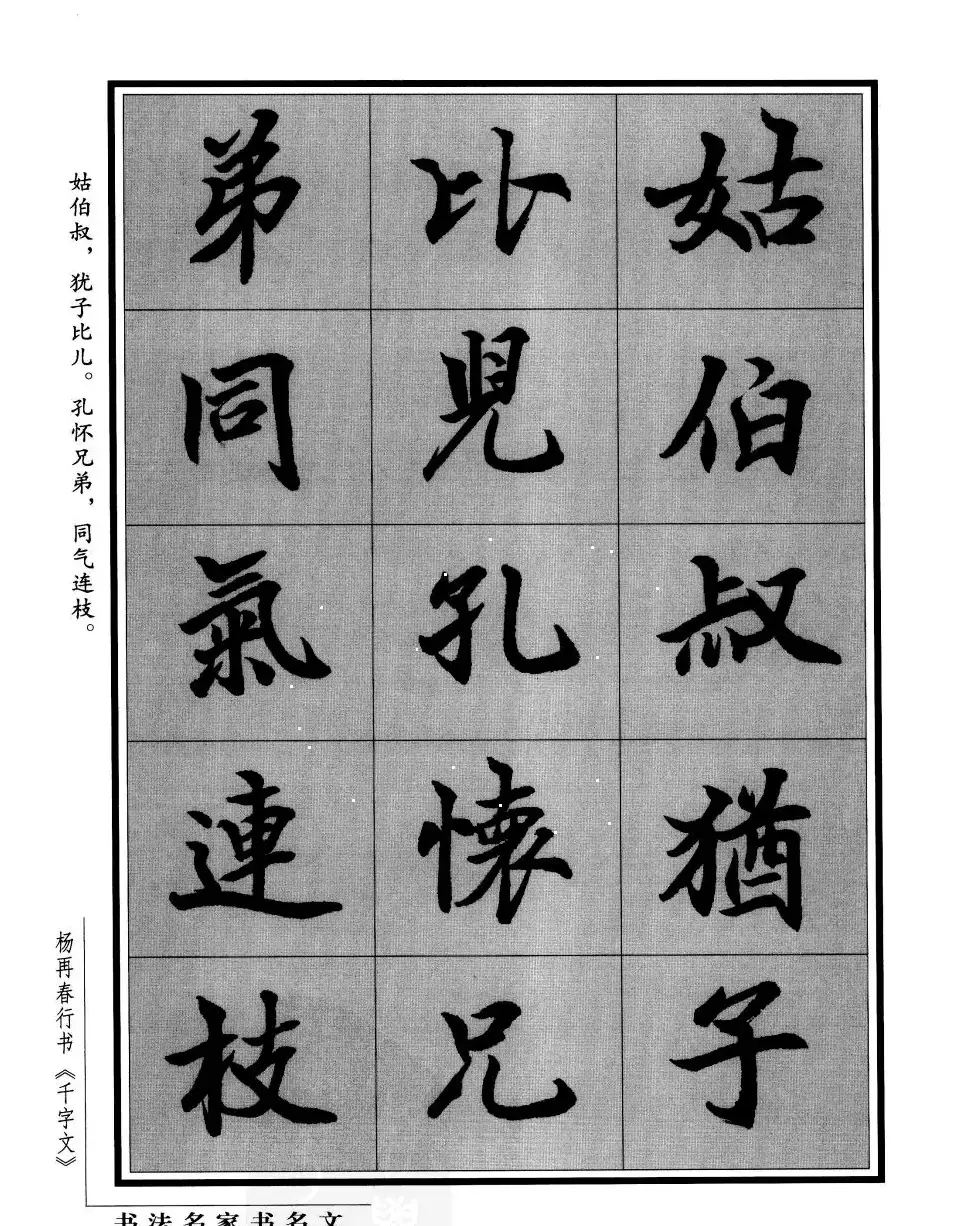 姑伯叔猶子
比兒孔懷兄
弟同氣連枝
姑伯叔，犹子比儿。孔怀兄弟，同气连枝。
杨再春行书《千字文》
书法名家书名文